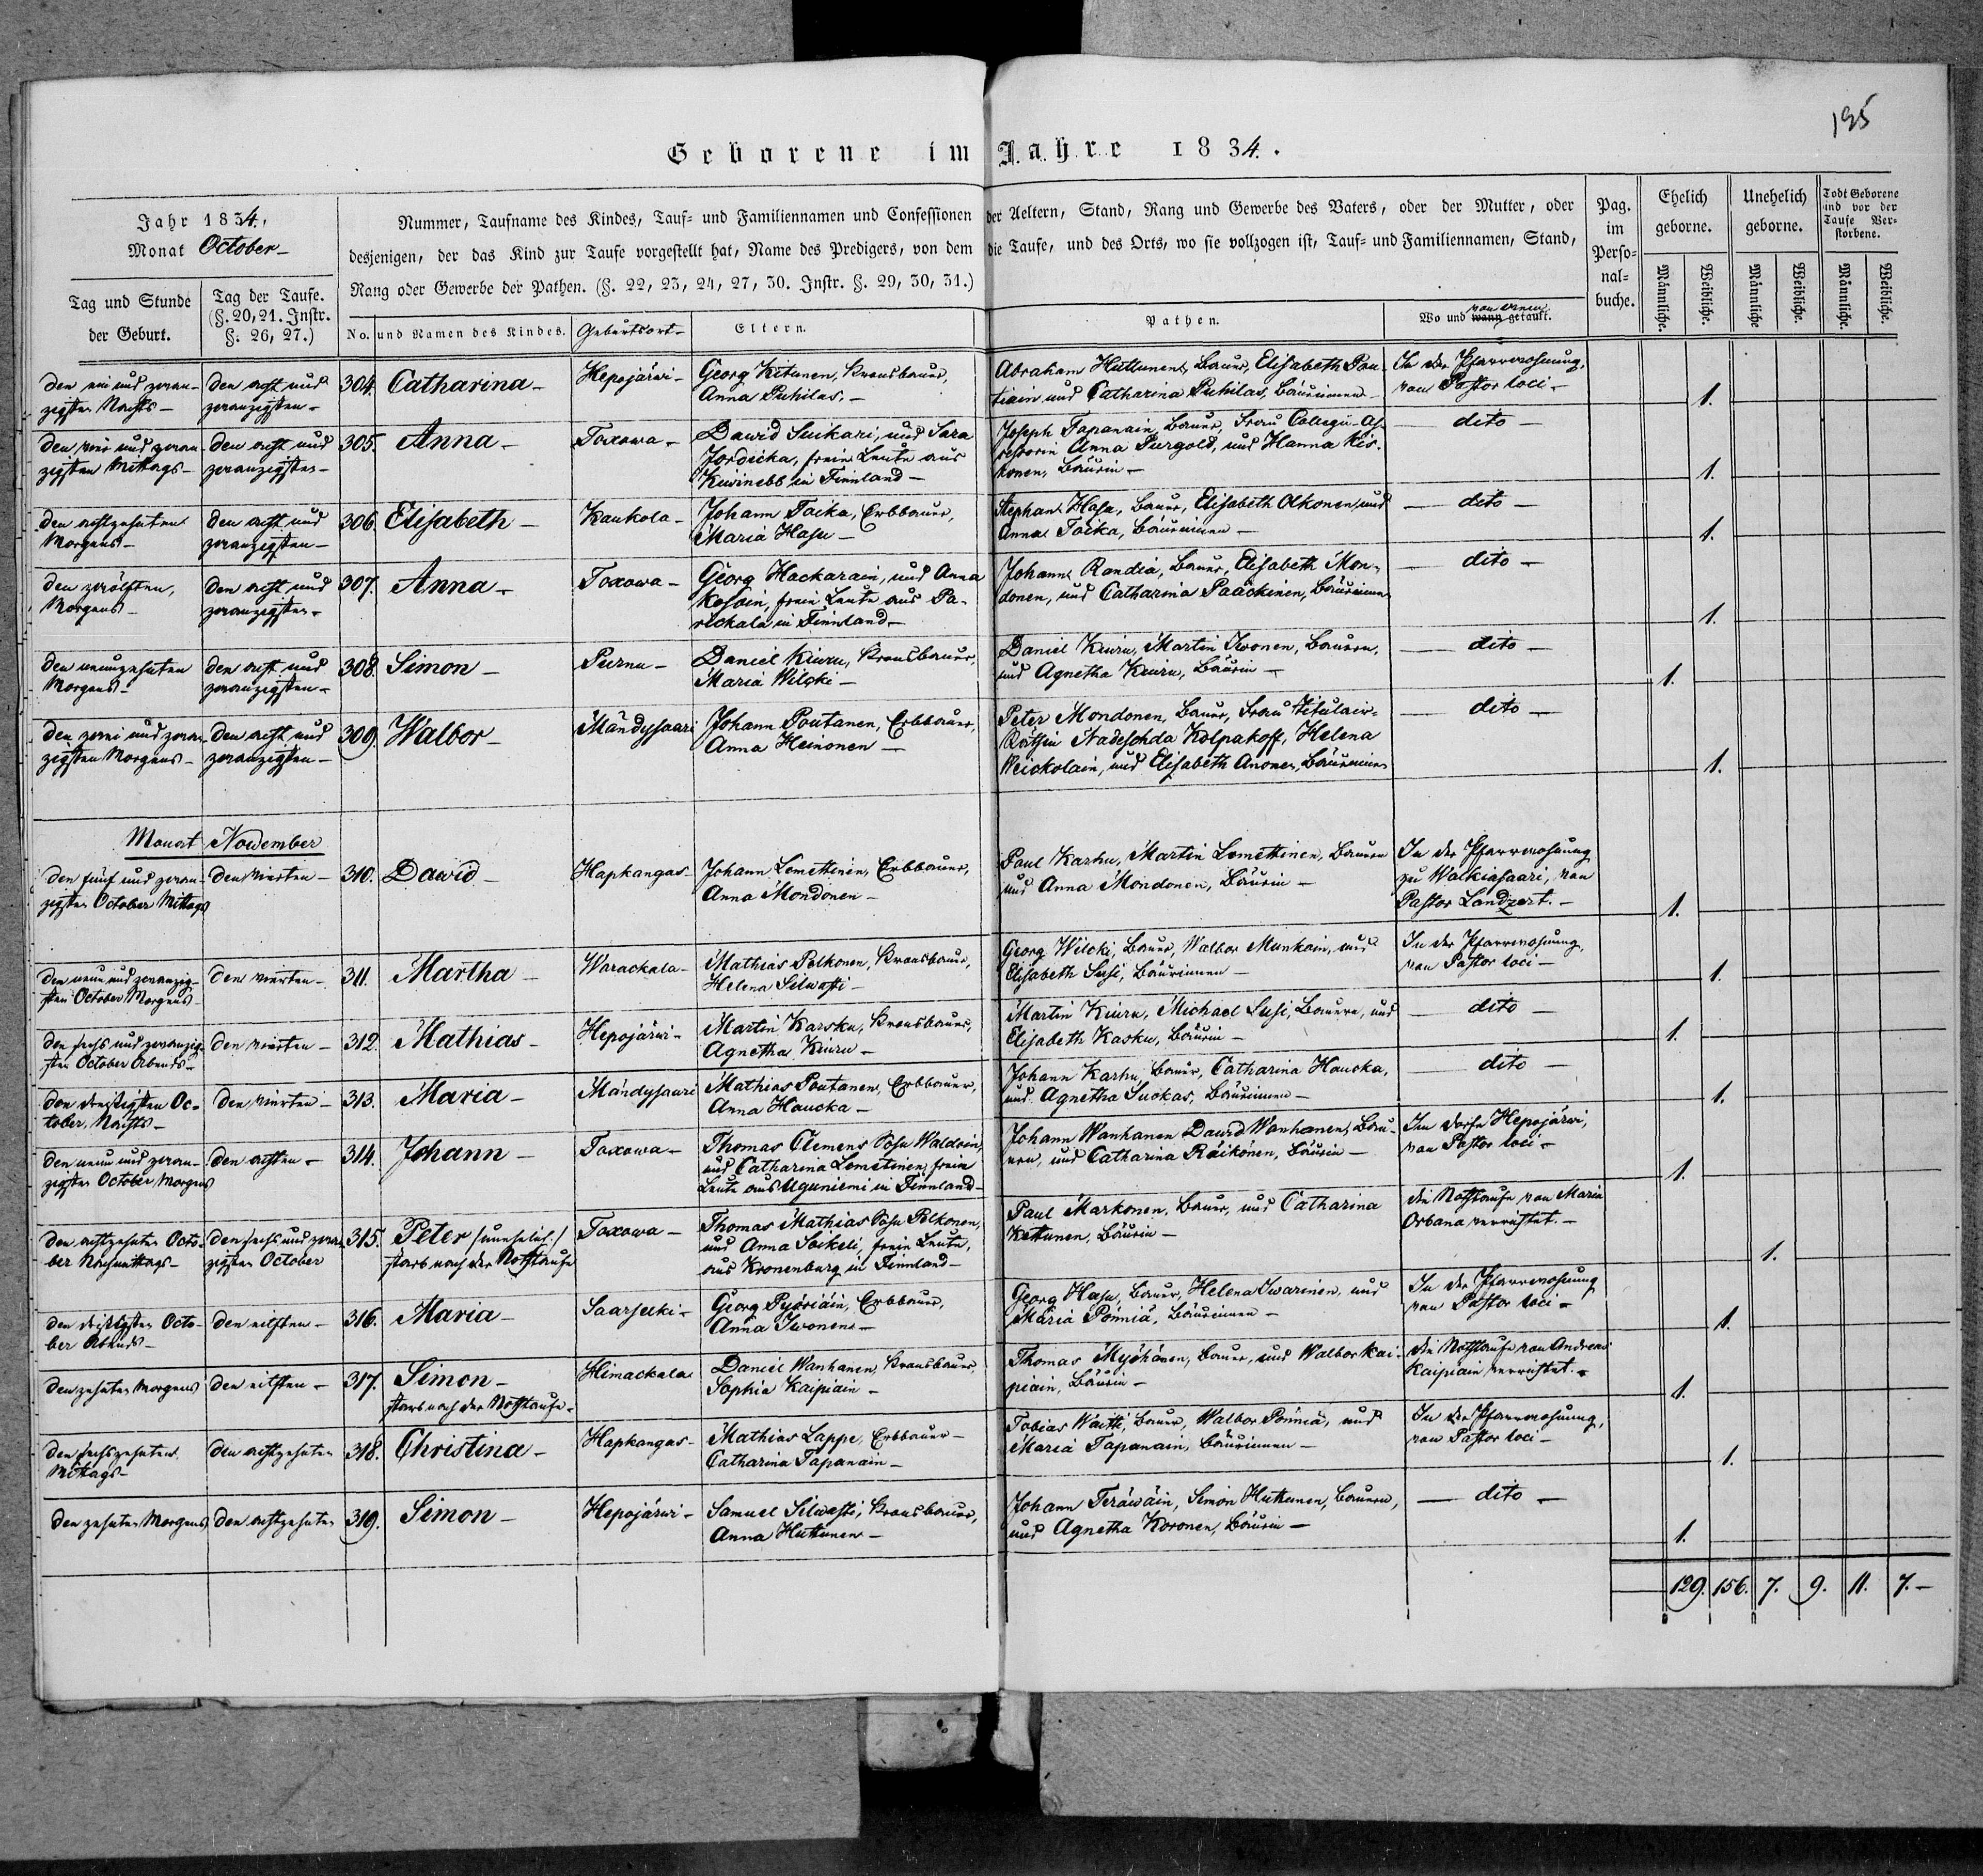 195
Geborene im Jahre 1834.
Jahr 1834.
Monat October
Nummer, Taufname des Kindes, Tauf- und Familiennamen und Confessionen der Aeltern, Stand, Rang und Gewerbe des Vaters, oder der Mutter, oder
desjenigen, der das Kind zur Taufe vorgestellt hat, Name des Predigers, von dem die Taufe, und des Orts, wo sie vollzogen ist, Tauf- und Familiennamen, Stand,
Rang oder Gewerbe der Pathen. (§. 22, 23, 24, 27, 30. Instr. §. 29, 30, 31.)
Pag. im Perso- nal- buche.
Ehelich geborne.
Unehelich geborne.
Todt Geborene und vor der Taufe Ver- storbene.
Männliche. Weibliche. Männliche Weibliche. Männliche. Weibliche.
Tag und Stunde der Geburt.
Tag der Taufe. (§. 20, 21. Instr. §. 26, 27.)
No. und Namen des Kindes. Geburtsort Eltern. Pathen. Wo und wann von wem getauft.
den ein und zwan- den acht und 304. Catharina Hepojärwi Georg Kitunen, Kronsbauer, Abraham Huttunen, Bauer, Elisabeth Pou- In der Pfarrwohnung,
zigsten Nachts zwanzigsten Anna Puhilas. tiain und Catharina Puhilas, Bäurinnen von Pastor loci 1.
den vier und zwan- den acht und 305. Anna Toxowa Dawid Suikari, und Sara Joseph Tapanain, Bauer, Frau Collegii-As- dito
zigsten Mittags zwanzigsten Jordicka, freie Leute aus sessorin Anna Purgold, und Hanna Kis-
Kuwinebb in Finnland konen, Bäurin 1.
den achtzehnten den acht und 306. Elisabeth Kaukola Johann Toika, Erbbauer, Stephan Hasu, Bauer, Elisabeth Olkonen, und dito
Morgens zwanzigsten Maria Hasu Anna Toika, Bäurinnen 1.
den zwölften, den acht und 307. Anna Toxowa Georg Hackarain, und Anna Johann Randia, Bauer, Elisabeth Mon- dito
Morgens zwanzigsten Kosoin, freie Leute aus Pa- donen, und Catharina Pääckinen, Bäurinnen
rickala in Finnland 1.
den neunzehnten den acht und 308. Simon Purnu Daniel Kiuru, Kronsbauer, Daniel Kiuru, Martin Iwonen, Bauern, dito
Morgens zwanzigsten Maria Wilcki und Agnetha Kiuru, Bäurin 1.
den zwei und zwan- den acht und 309. Walbor Mändysaari Johann Poutanen, Erbbauer, Peter Mondonen, Bauer, Frau Titulair- dito
zigsten Morgens zwanzigsten Anna Heinonen Räthin Nadeschda Kolpakoff, Helena
Weickolain, und Elisabeth Anonen, Bäurinnen 1.
Monat November
den fünf und zwan- den vierten 310. Dawid Hapkangas Johann Lemettinen, Erbbauer, Paul Karhu, Martin Lemettinen, Bauern In der Pfarrwohnung
zigsten October Mittags Anna Mondonen und Anna Mondonen, Bäurin zu Walkiasaari, von
Pastor Landzert. 1.
den neun und zwanzig- den vierten 311. Martha Warackala Mathias Pelkonen, Kronsbauer, Georg Wilcki, Bauer, Walbor Munkain, und In der Pfarrwohnung,
sten October Morgens Helena Silwesti Elisabeth Susi, Bäurinnen von Pastor loci 1.
den sechs und zwanzig- den vierten 312. Mathias Hepojärwi Martin Karsku, Kronsbauer, Martin Kiuru, Michael Susi, Bauern, und dito
sten October Abends Agnetha Kiuru Elisabeth Kasku, Bäurin 1.
den dreißigsten Oc- den vierten 313. Maria Mändysaari Mathias Poutanen, Erbbauer, Johann Karhu, Bauer, Catharina Haucka, dito
tober, Nachts Anna Haucka und Agnetha Suckas, Bäurinnen 1.
den neun und zwan- den achten 314. Johann Toxowa Thomas Clemens Sohn Waldoin, Johann Wanhanen Dawid Wanhanen, Bau- Im Dorfe Hepojärwi,
zigsten October Morgens und Catharina Lemetinen, freie ern, und Catharina Räikönen, Bäurin von Pastor loci
Leute aus Uguniemi in Finnland 1.
den achtzehnten Octo- den sechs und zwan- 315. Peter (unehelich.) Toxowa Thomas Mathias Sohn Pelkonen, Paul Markonen, Bauer, und Catharina die Nothtaufe von Maria
ber Nachmittags zigsten October starb nach der Nothtaufe und Anna Soikeli, freie Leute, Kettunen, Bäurin Orbana verrichtet.
aus Kronenburg in Finnland 1.
den dreißigsten Octo- den eilften 316. Maria Saarselki Georg Pyöriäin, Erbbauer, Georg Hasu, Bauer, Helena Iwarinen, und In der Pfarrwohnung
ber Abends Anna Iwonen Maria Pönniä, Bäurinnen von Pastor loci 1.
den zehnten Morgens den eilften 317. Simon Himackala Daniel Wanhanen, Kronsbauer, Thomas Myöhänen, Bauer, und Walbor Kai- die Nothtaufe von Andreas
starb nach der Nothtaufe. Sophia Kaipiain piain, Bäurin Kaipiain verrichtet. 1.
den sechszehnten den achtzehnten 318. Christina Hapkangas Mathias Lappe, Erbbauer Tobias Waitti, Bauer, Walbor Pönniä, und In der Pfarrwohnung,
Mittags Catharina Tapanain Maria Tapanain, Bäurinnen von Pastor loci 1.
den zehnten Morgens den achtzehnten 319. Simon Hepojärwi Samuel Silwesti, Kronsbauer, Johann Teräwäin, Simon Huttunen, Bauern, dito
Anna Huttunen und Agnetha Koronen, Bäurin 1.
129. 156. 7. 9. 11. 7.